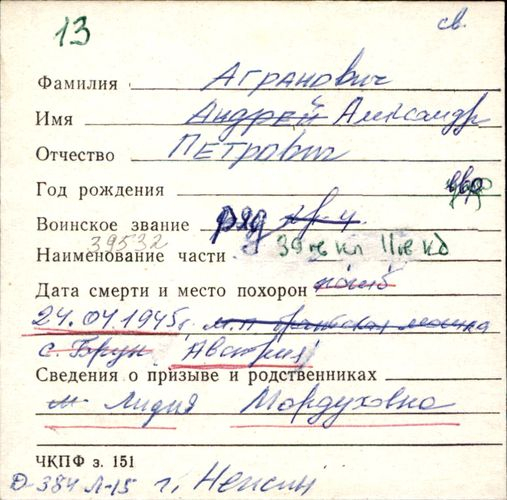 13 св.
Фамилия Агранович
Имя Андрей Александр
Отчество Петрович
Год рождения евр
Воинское звание ряд кр-ц
39532
Наименование части 39 гв кп 11 гв кд
Дата смерти и место похорон погиб
24.04.1945г. м.п. братская могила
с. Брун Австрия
Сведения о призыве и родственниках
м. Лидия Мордуховна
ЧКПФ з. 151
Д-384 Л-15 г. Нежин